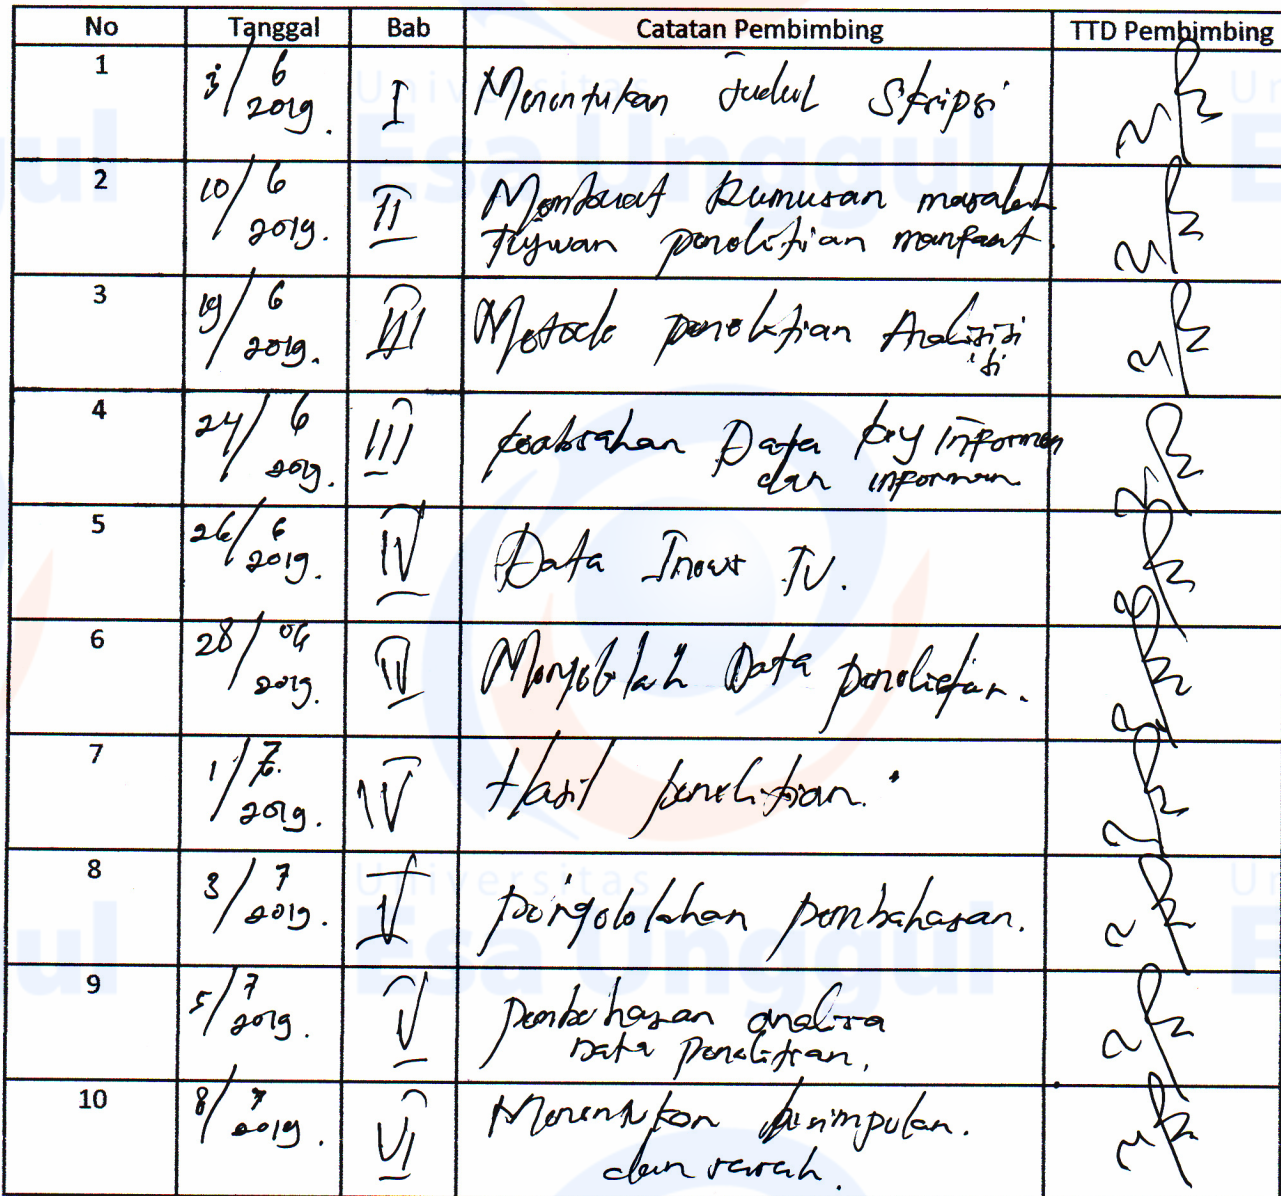 No Tanggal Bab Catatan Pembimbing TTD Pembimbing
1 3/6 2019. I Menentukan Judul Skripsi
2 10/6 2019. II Membuat Rumusan masalah
Tujuan penelitian manfaat.
3 19/6 2019. III Metode penelitian Analisis
isi
4 24/6 2019. III keabsahan Data key informen
dan informan
5 26/6 2019. IV Data Inews TV.
6 28/06 2019. IV Mengolah Data penelitian.
7 1/7 2019. IV Hasil penelitian.
8 3/7 2019. V pengololahan pembahasan.
9 5/7 2019. V pembahasan analisa
Data penelitian.
10 8/7 2019. VI Menentukan kesimpulan.
dan sarah.
Universitas
Esa Unggul
Universitas
Esa Unggul